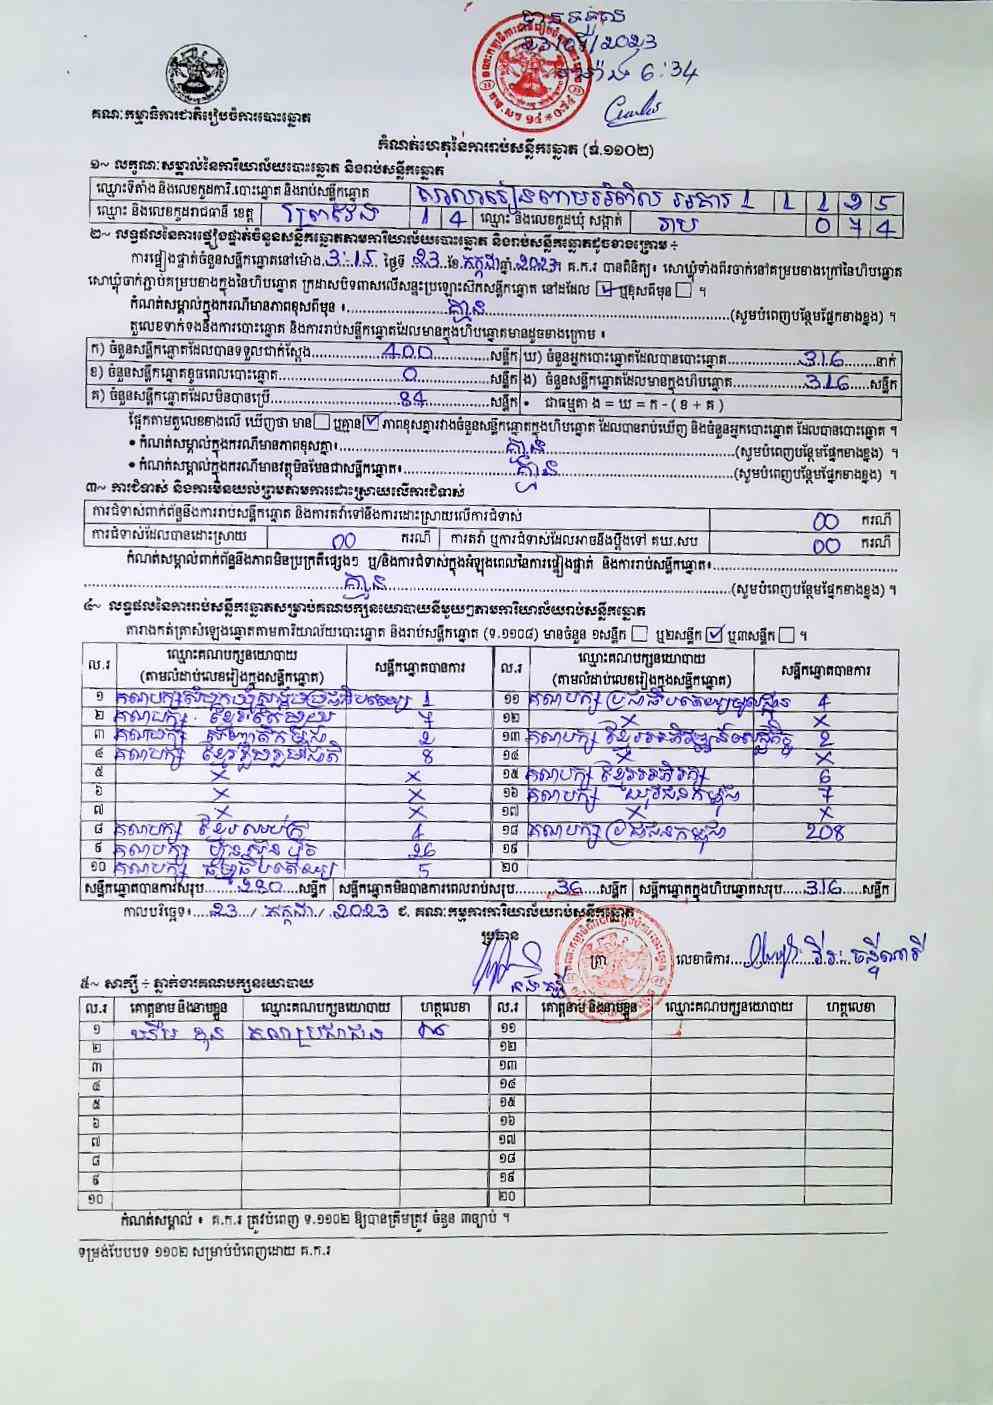 បានទទួល
23/07/2023
ម៉ោង 6:34
គណៈកម្មាធិការជាតិរៀបចំការបោះឆ្នោត
កំណត់ហេតុនៃការរាប់សន្លឹកឆ្នោត (ទ.១១០២)
១~ លក្ខណៈសម្គាល់នៃការិយាល័យបោះឆ្នោត និងរាប់សន្លឹកឆ្នោត
ឈ្មោះទីតាំង និងលេខកូដការិ.បោះឆ្នោត និងរាប់សន្លឹកឆ្នោត អគារ 1 1 1 2 5
ឈ្មោះ និងលេខកូដរាជធានី ខេត្ត ព្រៃវែង 1 4 ឈ្មោះ និងលេខកូដឃុំ សង្កាត់ រាប 0 7 4
២~ លទ្ធផលនៃការផ្ទៀងផ្ទាត់ចំនួនសន្លឹកឆ្នោតតាមការិយាល័យបោះឆ្នោត និងរាប់សន្លឹកឆ្នោតដូចខាងក្រោម ÷
ការផ្ទៀងផ្ទាត់ចំនួនសន្លឹកឆ្នោតនៅម៉ោង 3:15 ថ្ងៃទី 23 ខែ កក្កដា ឆ្នាំ 2023។ គ.ក.រ បានពិនិត្យ៖ សោឃ្លុំទាំងពីរចាក់នៅគម្របខាងក្រៅនៃហិបឆ្នោត
សោឃ្លុំចាក់ភ្ជាប់គម្របខាងក្នុងនៃហិបឆ្នោត ក្រដាសបិទពាសលើសន្ទះប្រឡោះស៊កសន្លឹកឆ្នោត នៅដដែល ☑ ឬខុសពីមុន ☐ ។
កំណត់សម្គាល់ក្នុងករណីមានភាពខុសពីមុន ៖ គ្មាន (សូមបំពេញបន្ថែមផ្នែកខាងខ្នង) ។
តួលេខទាក់ទងនឹងការបោះឆ្នោត និងការរាប់សន្លឹកឆ្នោតដែលមានក្នុងហិបឆ្នោតមានដូចខាងក្រោម ៖
ក) ចំនួនសន្លឹកឆ្នោតដែលបានទទួលជាក់ស្តែង 400 សន្លឹក ឃ) ចំនួនអ្នកបោះឆ្នោតដែលបានបោះឆ្នោត 316 នាក់
ខ) ចំនួនសន្លឹកឆ្នោតខូចពេលបោះឆ្នោត 0 សន្លឹក ង) ចំនួនសន្លឹកឆ្នោតដែលមានក្នុងហិបឆ្នោត 316 សន្លឹក
គ) ចំនួនសន្លឹកឆ្នោតដែលមិនបានប្រើ 84 សន្លឹក • ជាធម្មតា ង = ឃ = ក - ( ខ + គ )
ផ្អែកតាមតួលេខខាងលើ ឃើញថា មាន ☐ ឬគ្មាន ☑ ភាពខុសគ្នារវាងចំនួនសន្លឹកឆ្នោតក្នុងហិបឆ្នោត ដែលបានរាប់ឃើញ និងចំនួនអ្នកបោះឆ្នោត ដែលបានបោះឆ្នោត ។
• កំណត់សម្គាល់ក្នុងករណីមានភាពខុសគ្នា៖ គ្មាន (សូមបំពេញបន្ថែមផ្នែកខាងខ្នង) ។
• កំណត់សម្គាល់ក្នុងករណីមានវត្ថុមិនមែនជាសន្លឹកឆ្នោត៖ គ្មាន (សូមបំពេញបន្ថែមផ្នែកខាងខ្នង) ។
៣~ ការជំទាស់ និងការមិនយល់ព្រមតាមការដោះស្រាយលើការជំទាស់
ការជំទាស់ពាក់ព័ន្ធនឹងការរាប់សន្លឹកឆ្នោត និងការតវ៉ាទៅនឹងការដោះស្រាយលើការជំទាស់ 00 ករណី
ការជំទាស់ដែលបានដោះស្រាយ 00 ករណី ការតវ៉ា ឬការជំទាស់ដែលអាចនឹងប្តឹងទៅ គឃ.សប 00 ករណី
កំណត់សម្គាល់ពាក់ព័ន្ធនឹងភាពមិនប្រក្រតីផ្សេងៗ ឬ/និងការជំទាស់ក្នុងអំឡុងពេលនៃការផ្ទៀងផ្ទាត់ និងការរាប់សន្លឹកឆ្នោត៖
គ្មាន (សូមបំពេញបន្ថែមផ្នែកខាងខ្នង) ។
៤~ លទ្ធផលនៃការរាប់សន្លឹកឆ្នោតសម្រាប់គណបក្សនយោបាយនីមួយៗតាមការិយាល័យរាប់សន្លឹកឆ្នោត
តារាងកត់ត្រាសំឡេងឆ្នោតតាមការិយាល័យបោះឆ្នោត និងរាប់សន្លឹកឆ្នោត (ទ.១១០៨) មានចំនួន ១សន្លឹក ☐ ឬ២សន្លឹក ☑ ឬ៣សន្លឹក ☐ ។
ល.រ ឈ្មោះគណបក្សនយោបាយ (តាមលំដាប់លេខរៀងក្នុងសន្លឹកឆ្នោត) សន្លឹកឆ្នោតបានការ ល.រ ឈ្មោះគណបក្សនយោបាយ (តាមលំដាប់លេខរៀងក្នុងសន្លឹកឆ្នោត) សន្លឹកឆ្នោតបានការ
១ គណបក្សសំបុកឃ្មុំសង្គមប្រជាធិបតេយ្យ 1 ១១ គណបក្ស ប្រជាធិបតេយ្យមូលដ្ឋាន 4
២ គណបក្ស ខ្មែរតែមួយ 7 ១២ X X
៣ គណបក្ស សញ្ជាតិកម្ពុជា 2 ១៣ គណបក្ស ខ្មែរអភិវឌ្ឍន៍សេដ្ឋកិច្ច 2
៤ គណបក្ស ខ្មែររួបរួមជាតិ 8 ១៤ X X
៥ X X ១៥ គណបក្ស ខ្មែរអភិរក្ស 6
៦ X X ១៦ គណបក្ស យុវជនកម្ពុជា 7
៧ X X ១៧ X X
៨ គណបក្ស ខ្មែរឈប់ក្រ 4 ១៨ គណបក្ស ប្រជាជនកម្ពុជា 208
៩ គណបក្ស ហ្វ៊ុនស៊ិនប៉ិច 26 ១៩
១០ គណបក្ស ធម្មាធិបតេយ្យ 5 ២០
សន្លឹកឆ្នោតបានការសរុប 280 សន្លឹក សន្លឹកឆ្នោតមិនបានការពេលរាប់សរុប 36 សន្លឹក សន្លឹកឆ្នោតក្នុងហិបឆ្នោតសរុប 316 សន្លឹក
កាលបរិច្ឆេទ៖ 23 / កក្កដា / 2023 ជ. គណៈកម្មការការិយាល័យរាប់សន្លឹកឆ្នោត
ប្រធាន ត្រា លេខាធិការ
៥~ សាក្សី ÷ ភ្នាក់ងារគណបក្សនយោបាយ
ល.រ គោត្តនាម និងនាមខ្លួន ឈ្មោះគណបក្សនយោបាយ ហត្ថលេខា ល.រ គោត្តនាម និងនាមខ្លួន ឈ្មោះគណបក្សនយោបាយ ហត្ថលេខា
១ គណប្រជាជន ១១
២ ១២
៣ ១៣
៤ ១៤
៥ ១៥
៦ ១៦
៧ ១៧
៨ ១៨
៩ ១៩
១០ ២០
កំណត់សម្គាល់ ៖ គ.ក.រ ត្រូវបំពេញ ទ.១១០២ ឱ្យបានត្រឹមត្រូវ ចំនួន ៣ច្បាប់ ។
ទម្រង់បែបបទ ១១០២ សម្រាប់បំពេញដោយ គ.ក.រ